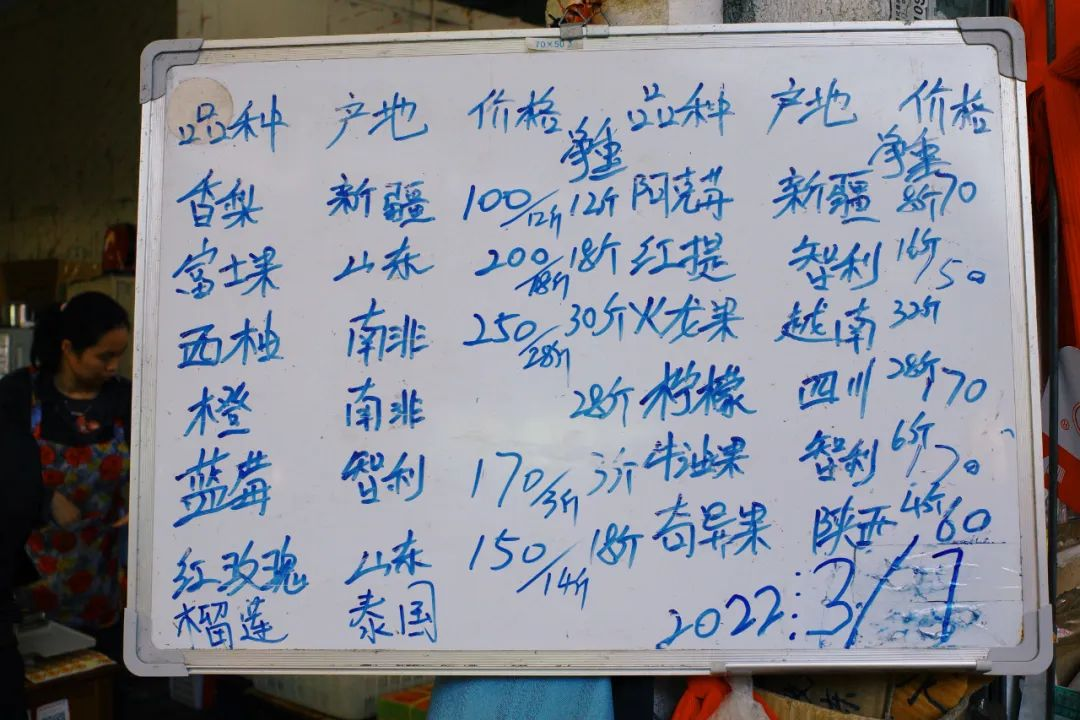 70×50
品种 产地 价格 净重 品种 产地 价格 净重
香梨 新疆 100/12斤 12斤 阿克苏 新疆 8斤 70
富士果 山东 200/18斤 18斤 红提 智利 16斤/50
西柚 南非 250/28斤 30斤 火龙果 越南 32斤
橙 南非 28斤 柠檬 四川 28斤/170
蓝莓 智利 170/3斤 3斤 牛油果 智利 6斤/70
红玫瑰 山东 150/14斤 18斤 奇异果 陕西 4斤/60
榴莲 泰国
2022:3/7